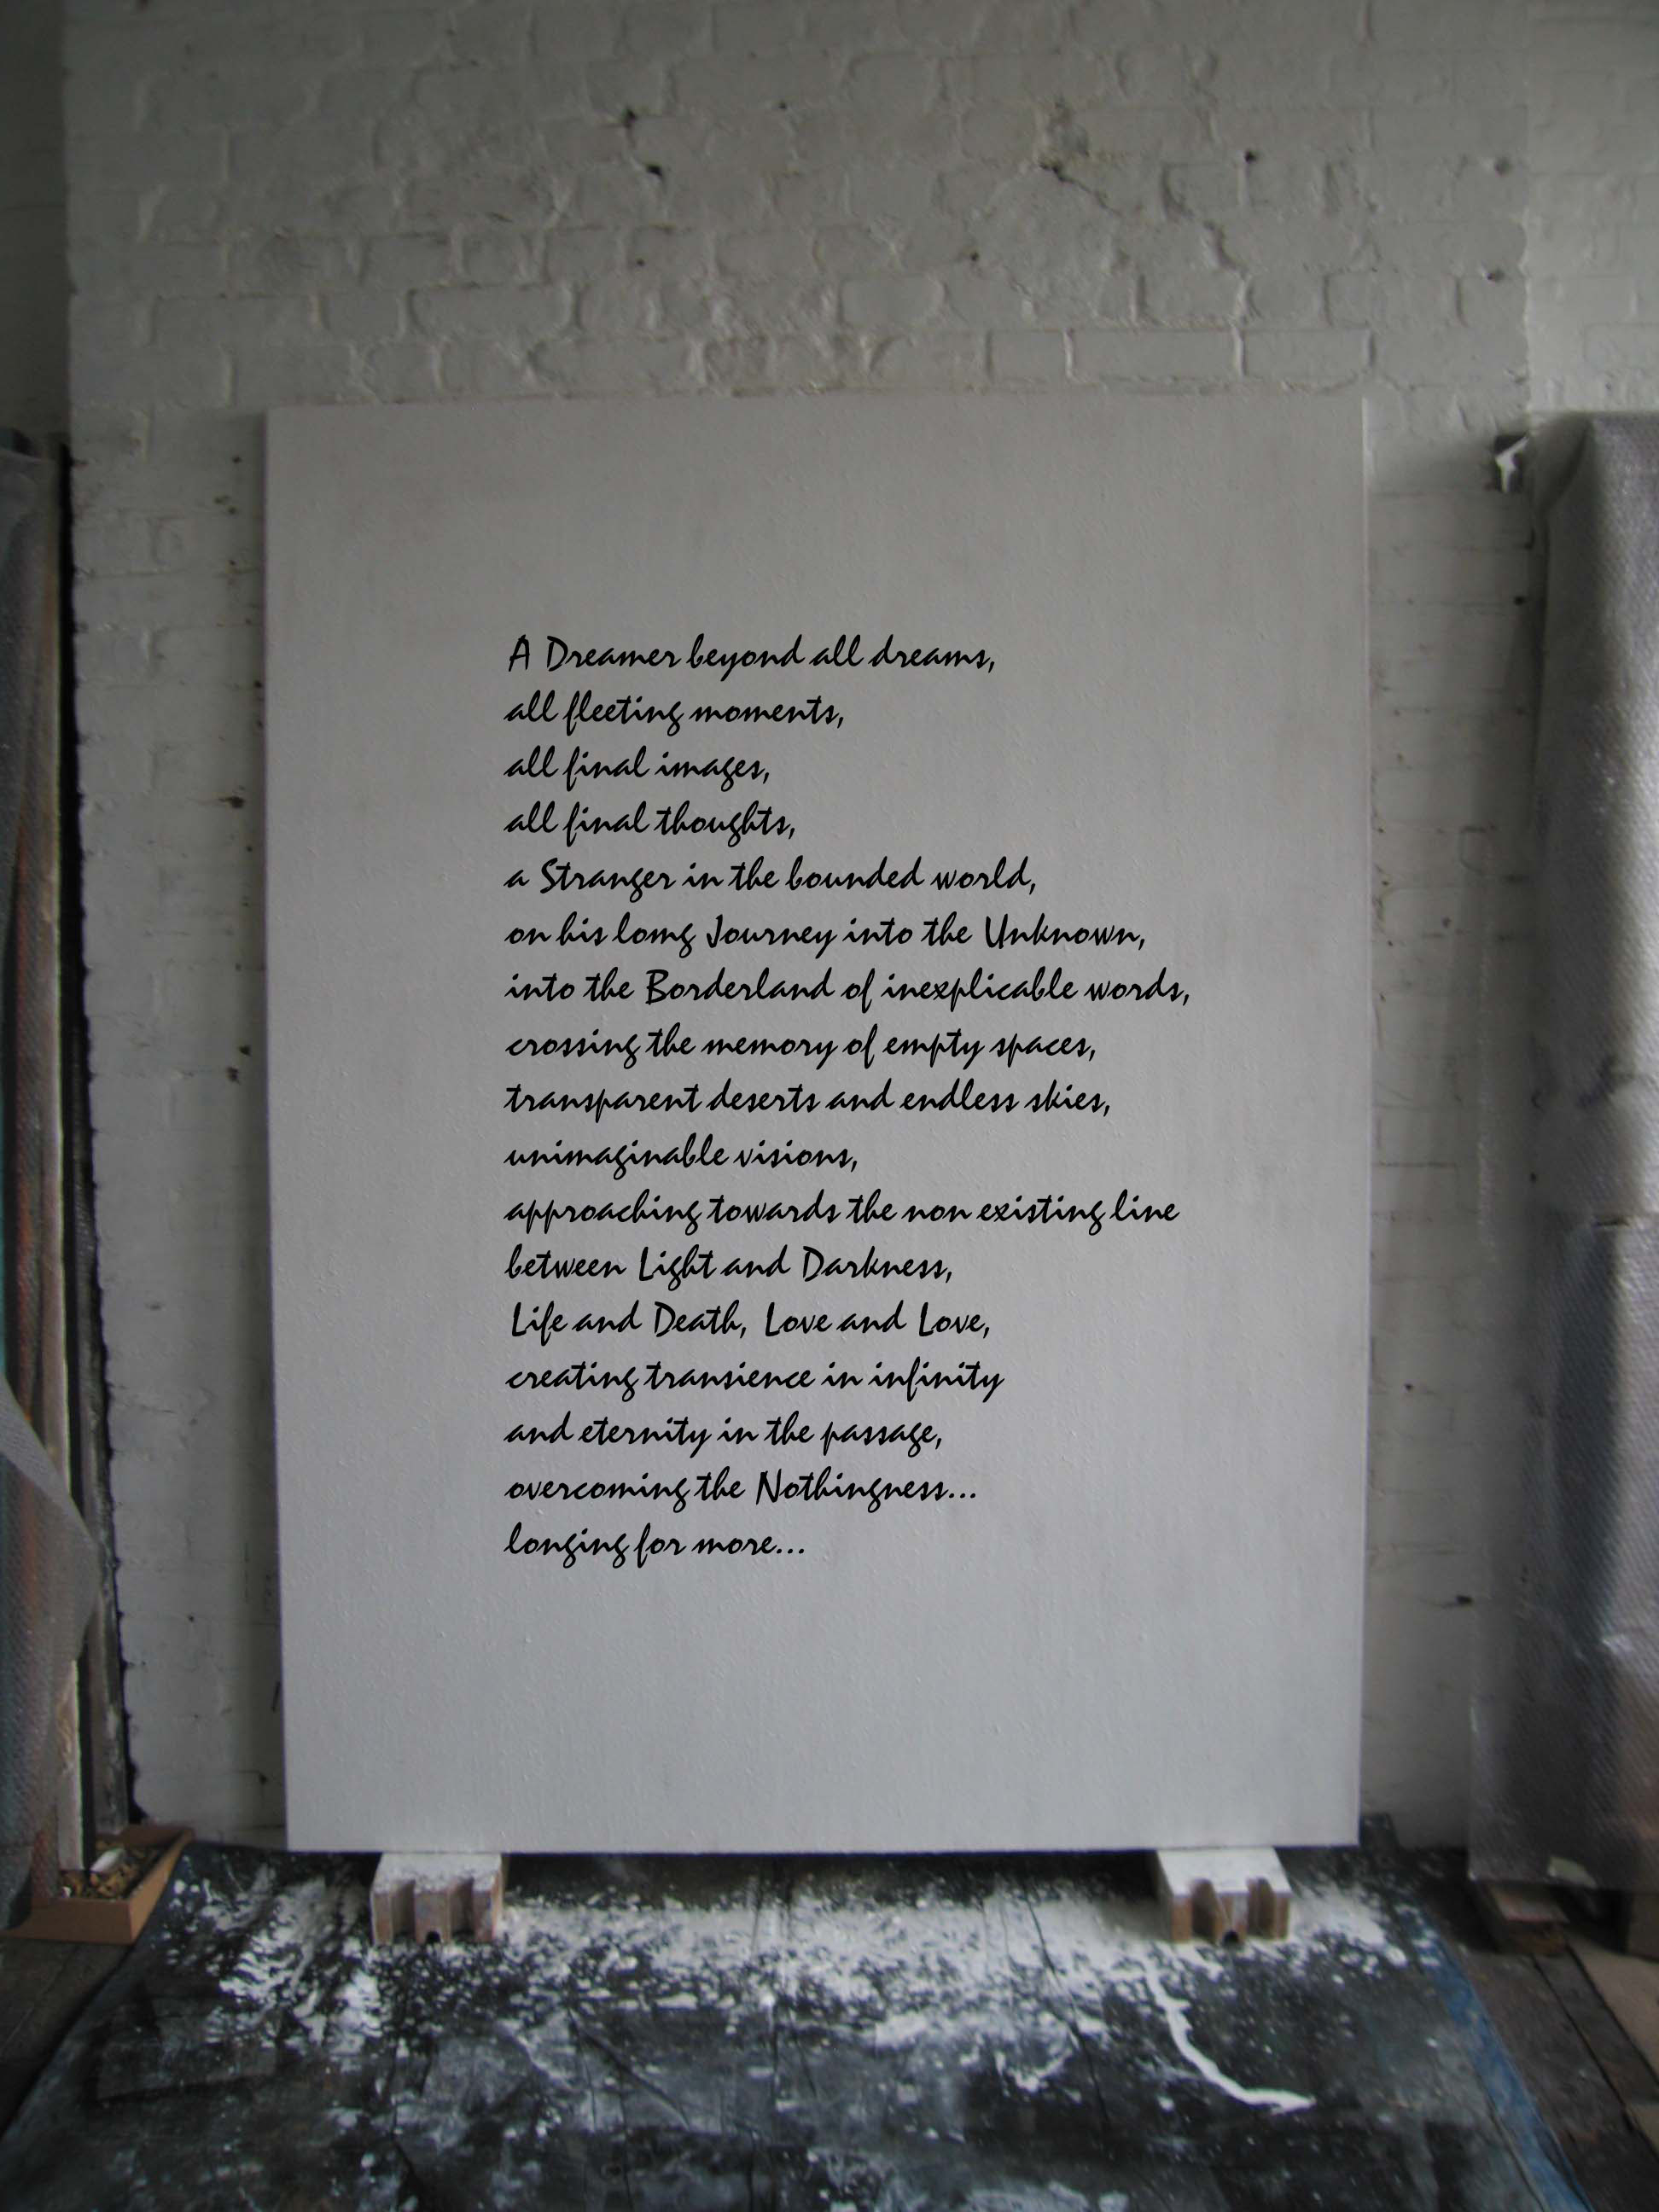 A Dreamer beyond all dreams,
all fleeting moments,
all final images,
all final thoughts,
a Stranger in the bounded world,
on his lomg Journey into the Unknown,
into the Borderland of inexplicable words,
crossing the memory of empty spaces,
transparent deserts and endless skies,
unimaginable visions,
approaching towards the non existing line
between Light and Darkness,
Life and Death, Love and Love,
creating transience in infinity
and eternity in the passage,
overcoming the Nothingness...
longing for more...